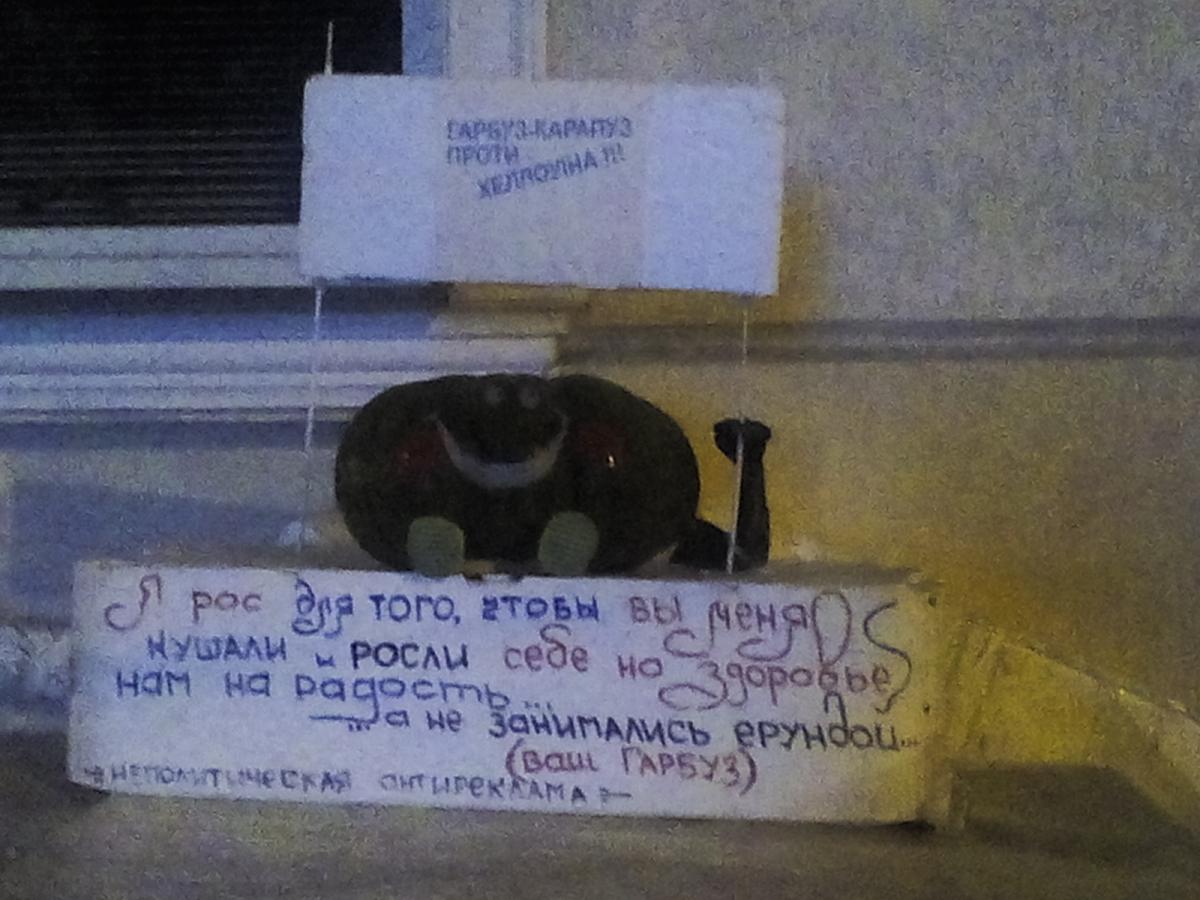 ГАРБУЗ-КАРАПУЗ
ПРОТИ
ХЕЛЛОУИНА !!!
Я рос для того, чтобы вы меня
кушали и росли себе на здоровье
нам на радость...
...а не занимались ерундой...
(ваш ГАРБУЗ)
НЕПОЛИТИЧЕСКАЯ антиреклама